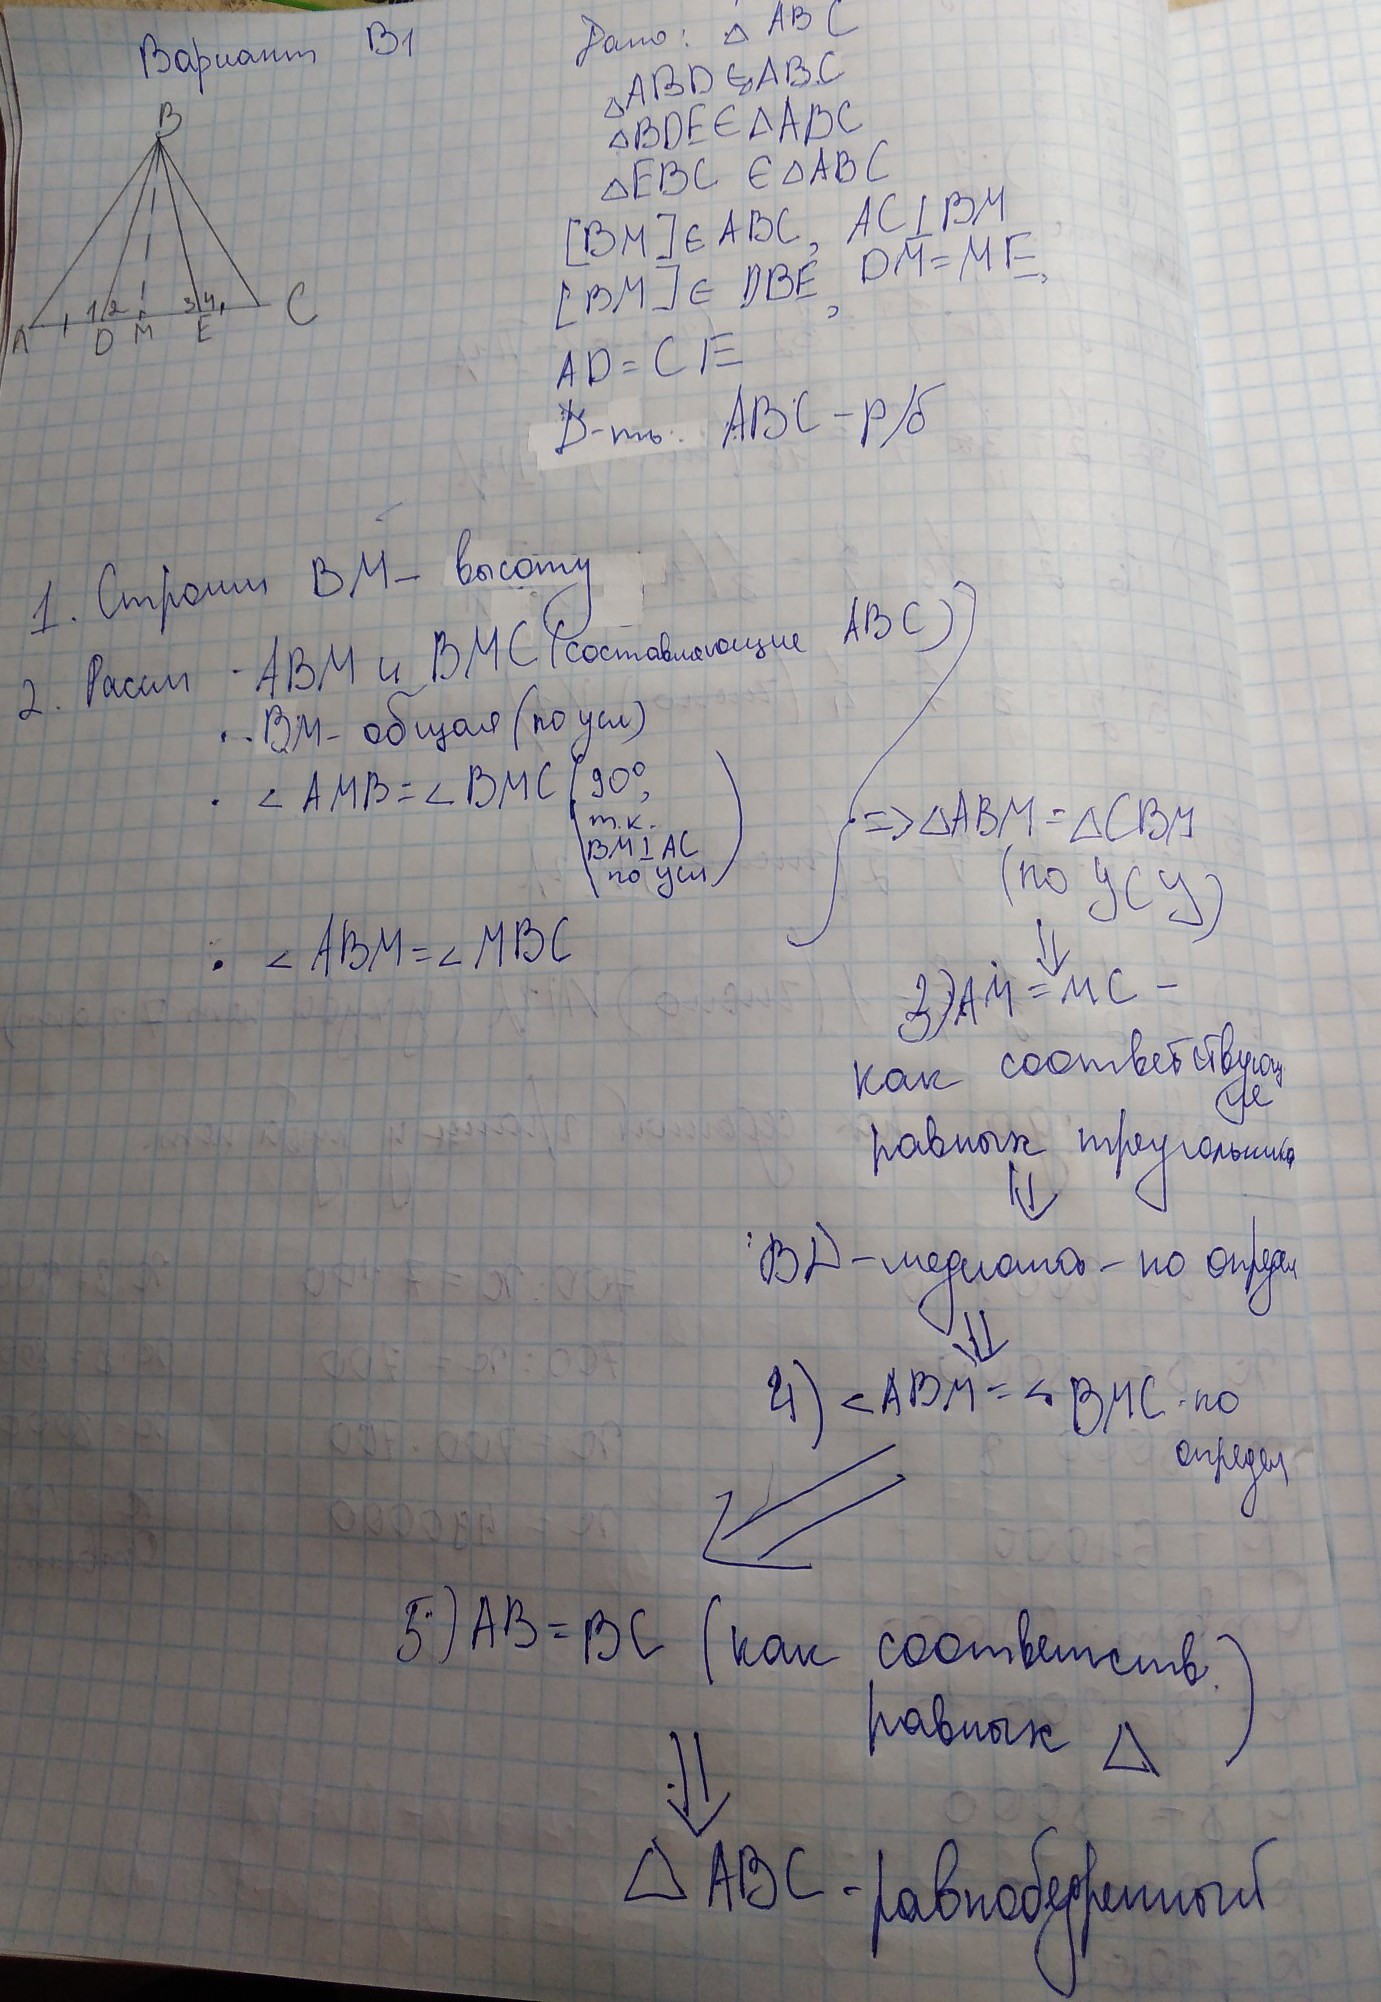 Вариант В1
B
A
1
2
3
4
D
M
E
C
Дано: △ ABC
△ABD ∈ ABC
△BDE ∈ △ABC
△EBC ∈ △ABC
[BM] ∈ ABC, AC⊥BM
[BM] ∈ DBE, DM=ME,
AD=CE
Д-ть: ABC - р/б
1. Строим BM - высоту
2. Рассм ABM и BMC (составляющие ABC)
· BM - общая (по усл)
· ∠AMB=∠BMC (90°,
т.к.
BM⊥AC
по усл)
· ∠ABM=∠MBC
=> △ABM=△CBM
(по УСУ)
⇓
3) AM=MC -
как соответствующ
ие
равных треугольника
⇓
BD - медиана - по опредл
⇓
4) ∠ABM=∠BMC - по
определ
5) AB=BC (как соответств.
равных △)
⇓
△ABC - равнобедренный